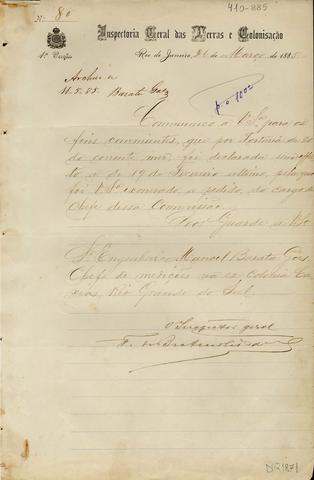 410-885
N. 80
Inspectoria Geral das Terras e Colonisação
Rio de Janeiro, 26 de Março de 1885
Archive-se
11.5.85. Barata Góes
Communico a V. Sa. para os
fins convenientes, que por Portaria de 20
do corrente mez foi declarada sem effeito
a de 19 de Fevereiro ultimo, pela qual
foi V. Sa. exonerado a pedido, do cargo de
Chefe dessa Commissão.
Deos Guarde a V. Sa.
Sr. Engenheiro Manoel Barata Góes
Chefe de medições na ex Colonia Ca
xias, Rio Grande do Sul.
O Inspector geral